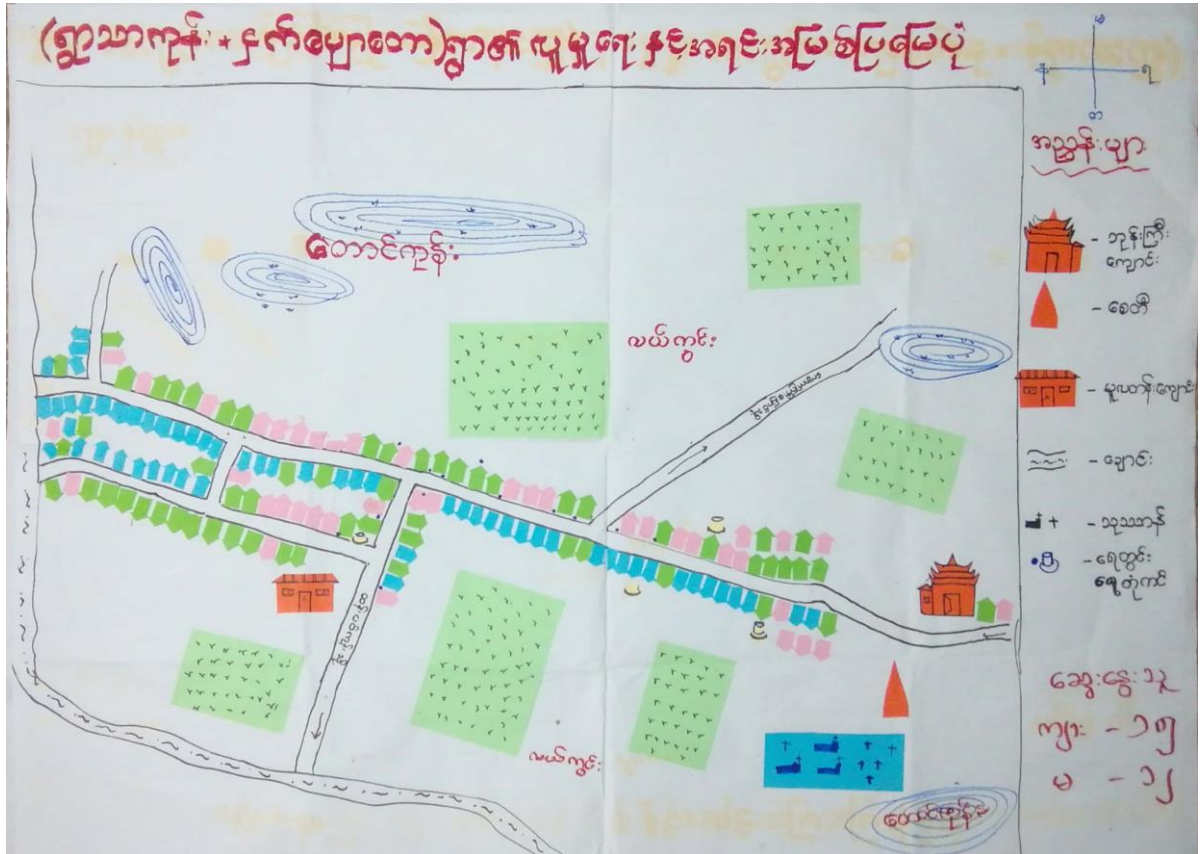 (ရွာသာကုန်း + ငှက်ပျောတော)ရွာ၏ လူမှုရေး နှင့်အရင်းအမြစ်ပြမြေပုံ
န
ရ
တ
အညွှန်းများ
- ဘုန်းကြီး
ကျောင်း
- စေတီ
- မူလတန်းကျောင်း
- ချောင်း
- သုဿာန်
- ရေတွင်း
တောင်ကုန်း
လယ်ကွင်း
လယ်ကွင်း
တောင်ကုန်း
ဆွေးနွေးသူ
ကျား - ၁၅
မ - ၁၂